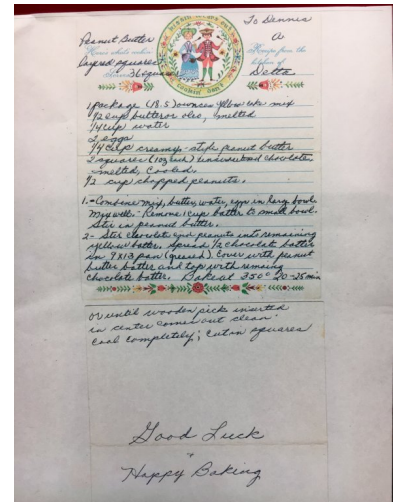 Kissin' wears out
cookin' don't
To Dennis
Peanut Butter
A
Here's what's cookin
Recipe from the
layered squares
kitchen of
36 squares
Delta
1 package (18.5) ounces yellow cake mix
1/2 cup butter or oleo, melted
1/4 cup water
2 eggs
1/4 cup creamy-style peanut butter
2 squares (1 oz each) unsweetened chocolate
melted, cooled.
1/2 cup chopped peanuts.
1.- Combine mix, butter, water, eggs in large bowl
Mix well. Remove 1 cup batter to small bowl.
Stir in peanut butter.
2- Stir chocolate and peanuts into remaining
yellow batter. Spread 1/2 chocolate batter
in 9X13 pan (greased). Cover with peanut
butter batter and top with remaing
chocolate batter. Bake at 350° 20-25 min
or until wooden pick inserted
in center comes out clean.
Cool completely; cut in squares
Good Luck
"
Happy Baking